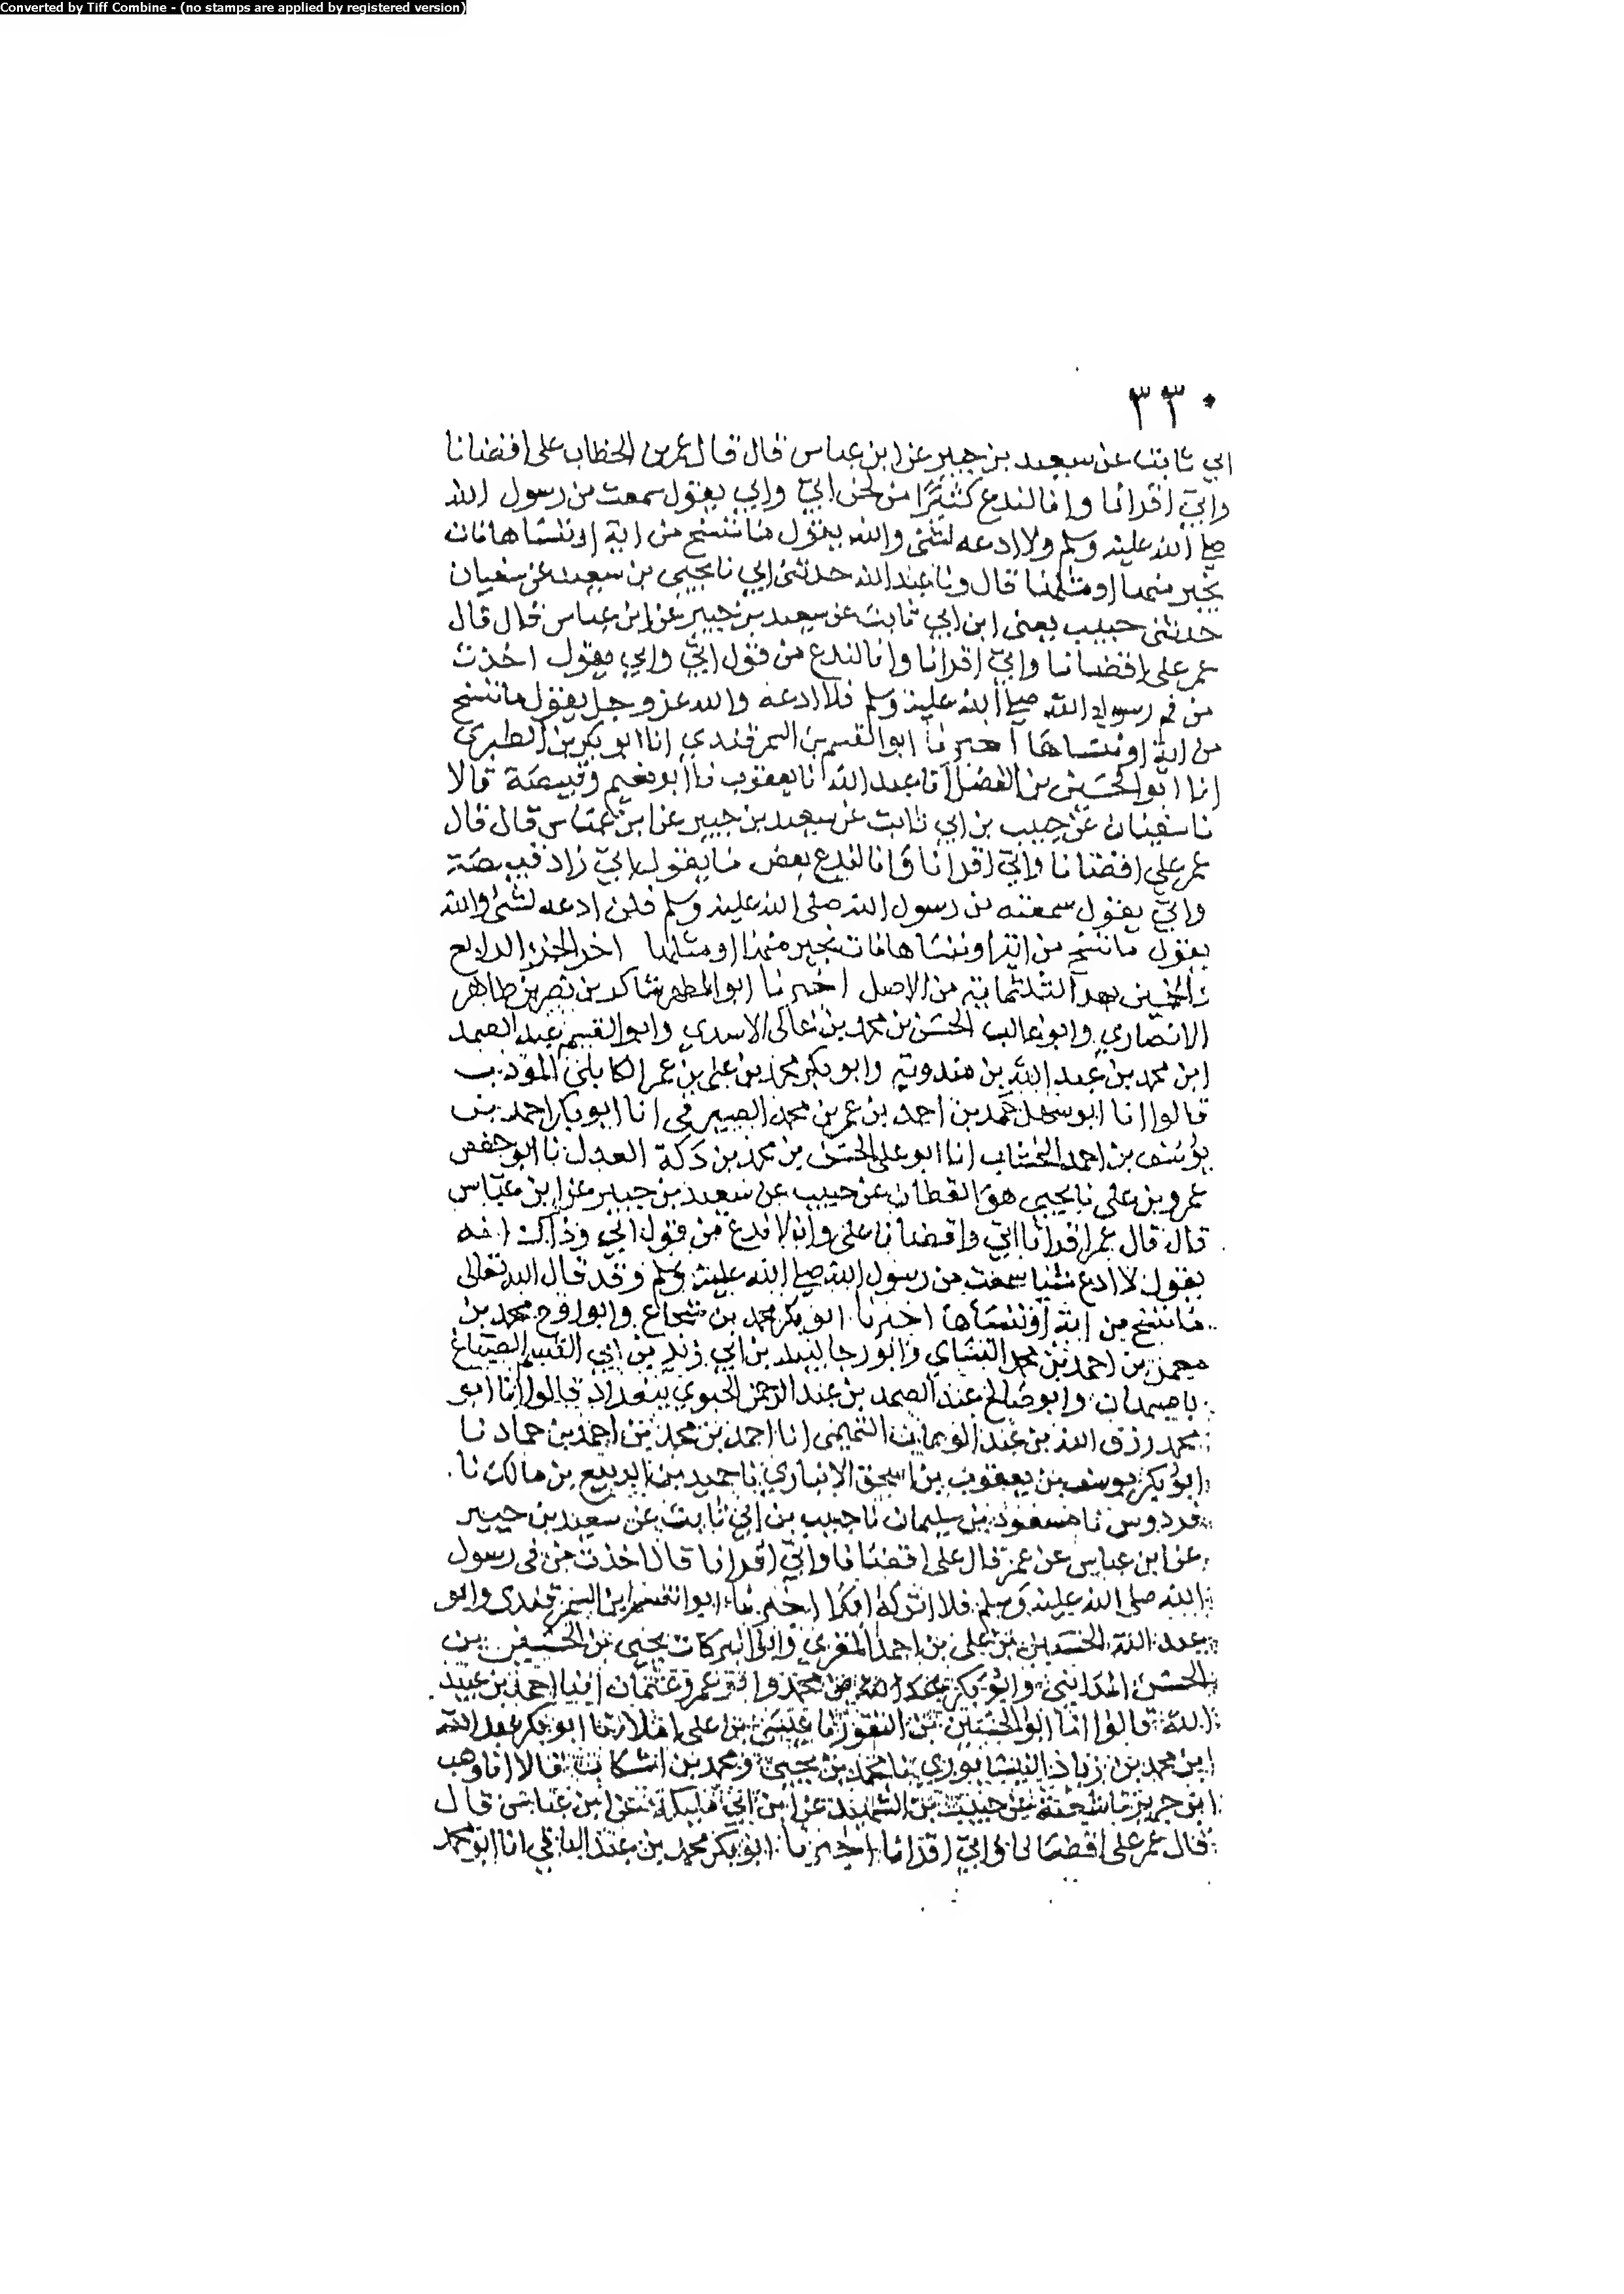 Converted by Tiff Combine - (no stamps are applied by registered version)
٣٣٠
ابي ثابت عن سعيد بن جبير عن ابن عباس قال قال عمر بن الخطاب علي اقضانا
وابيّ اقرانا وانا لندع كثيرًا من لحن ابيّ وابي يقول سمعت من رسول الله
صلى الله عليه وسلم ولا ادعه لشئ والله يقول ما ننسخ من اية او ننساها نات
بخير منها او مثلها قال ونا عبد الله حدثني ابي نا يحيى بن سعيد عن سفيان
حدثني حبيب يعني ابن ابي ثابت عن سعيد بن جبير عن ابن عباس قال قال
عمر علي اقضانا وابيّ اقرانا وانا لندع من قول ابيّ وابي يقول اخذت
من فم رسول الله صلى الله عليه وسلم فلا ادعه والله عز وجل يقول ما ننسخ
من اية او ننساها اخبرنا ابو القسم بن السمرقندي انا ابو بكر بن الطبري
انا ابو الحسين بن الفضل انا عبد الله نا يعقوب نا ابو نعيم وقبيصة قالا
نا سفيان عن حبيب بن ابي ثابت عن سعيد بن جبير عن ابن عباس قال قال
عمر علي اقضانا وابيّ اقرانا وانا لندع بعض ما يقول ابيّ زاد قبيصة
وابيّ يقول سمعته من رسول الله صلى الله عليه وسلم فلن ادعه لشئ والله
يقول ما ننسخ من اية او ننساها نات بخير منها او مثلها اخر الجزء الرابع
والخمسين بعد الثلثماية من الاصل اخبرنا ابو المطهر شاكر بن نصر بن طاهر
الانصاري وابو غالب الحسن بن محمد بن عالي الاسدي وابو القسم عبد الصمد
ابن محمد بن عبد الله بن مندويه وابو بكر محمد بن علي بن عمر الكابلي المؤدب
قالوا انا ابو سهل حمد بن احمد بن عمر بن محمد الصيرفي انا ابو بكر احمد بن
يوسف بن احمد الخشاب انا ابو علي الحسن بن محمد بن دكة العدل نا ابو حفص
عمرو بن علي نا يحيى هو القطان عن حبيب عن سعيد بن جبير عن ابن عباس
قال قال عمر اقرانا ابيّ واقضانا علي وانا لندع من قول ابي وذاك انه
يقول لا ادع شيا سمعت من رسول الله صلى الله عليه وسلم وقد قال الله تعالى
ما ننسخ من اية او ننساها اخبرنا ابو بكر محمد بن شجاع وابو روح محمد بن
معمر بن احمد بن محمد وابو رجا لبيد بن ابي زيد بن ابي القسم الصباغ
باصبهان وابو صالح عبد الصمد بن عبد الرحمن الحنوي ببغداد قالوا انا ابو
محمد رزق الله بن عبد الوهاب التميمي انا احمد بن محمد بن احمد بن حماد نا
ابو بكر يوسف بن يعقوب بن اسحق الانباري نا حميد بن الربيع بن مالك نا
فردوس نا مسعود بن سليمان نا حبيب بن ابي ثابت عن سعيد بن جبير
عن ابن عباس عن عمر قال علي اقضانا وابيّ اقرانا قال اخذت من في رسول
الله صلى الله عليه وسلم فلا اتركه ابدا اخبرنا ابو القسم بن السمرقندي وابو
عبد الله الحسين بن علي بن احمد المقري وابو البركات يحيى بن الحسين بن
الحسن المدايني وابو بكر وابو عمرو عثمان انبا احمد بن عبيد
الله قالوا انا ابو الحسين بن النقور نا عيسى بن علي املا نا ابو بكر عبد الله
ابن محمد بن زياد النيسابوري نا محمد بن يحيى ومحمد بن اشكاب قالا نا وهب
ابن جرير نا شعبة عن حبيب بن الشهيد عن ابن ابي مليكة عن ابن عباس قال
قال عمر علي اقضانا وابيّ اقرانا اخبرنا ابو بكر محمد بن عبد الباقي انا ابو محمد